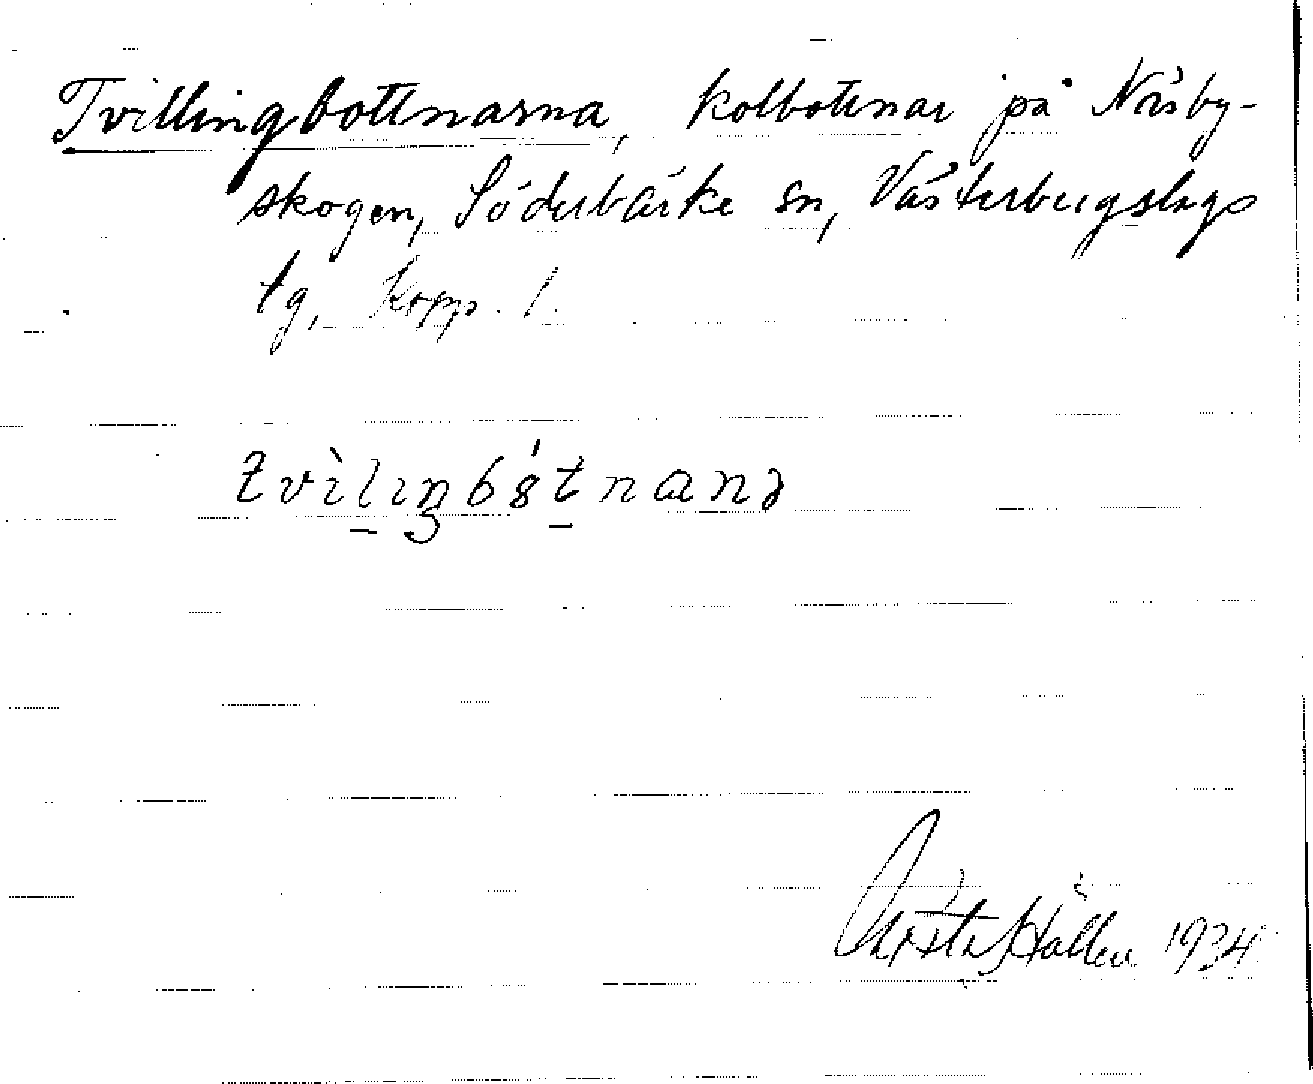 Tvillingbottnarna, kolbotnar på Näsby-
skogen, Söderbärke sn, Västerbergslags
tg, Kopp. l.
tvìlıŋbótnanə
Hällen 1934